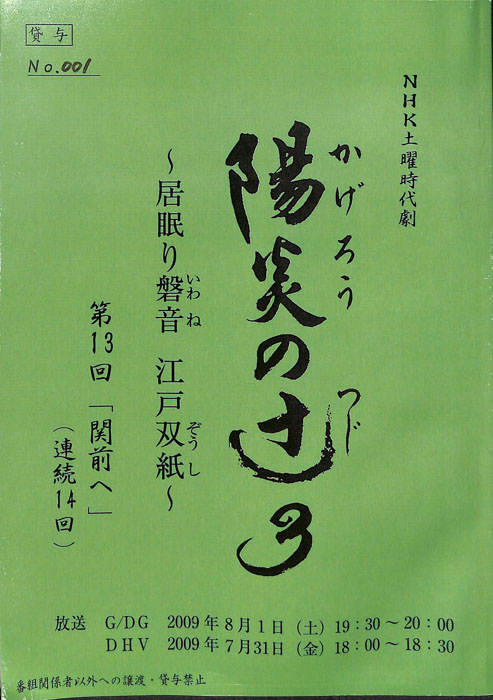 貸与
No.001
NHK土曜時代劇
かげろう
つじ
陽炎の辻3
～居眠り磐音 江戸双紙～
いわね
ぞうし
第13回「関前へ」
(連続14回)
放送 G/DG 2009年8月1日(土)19:30～20:00
DHV 2009年7月31日(金)18:00～18:30
番組関係者以外への譲渡・貸与禁止